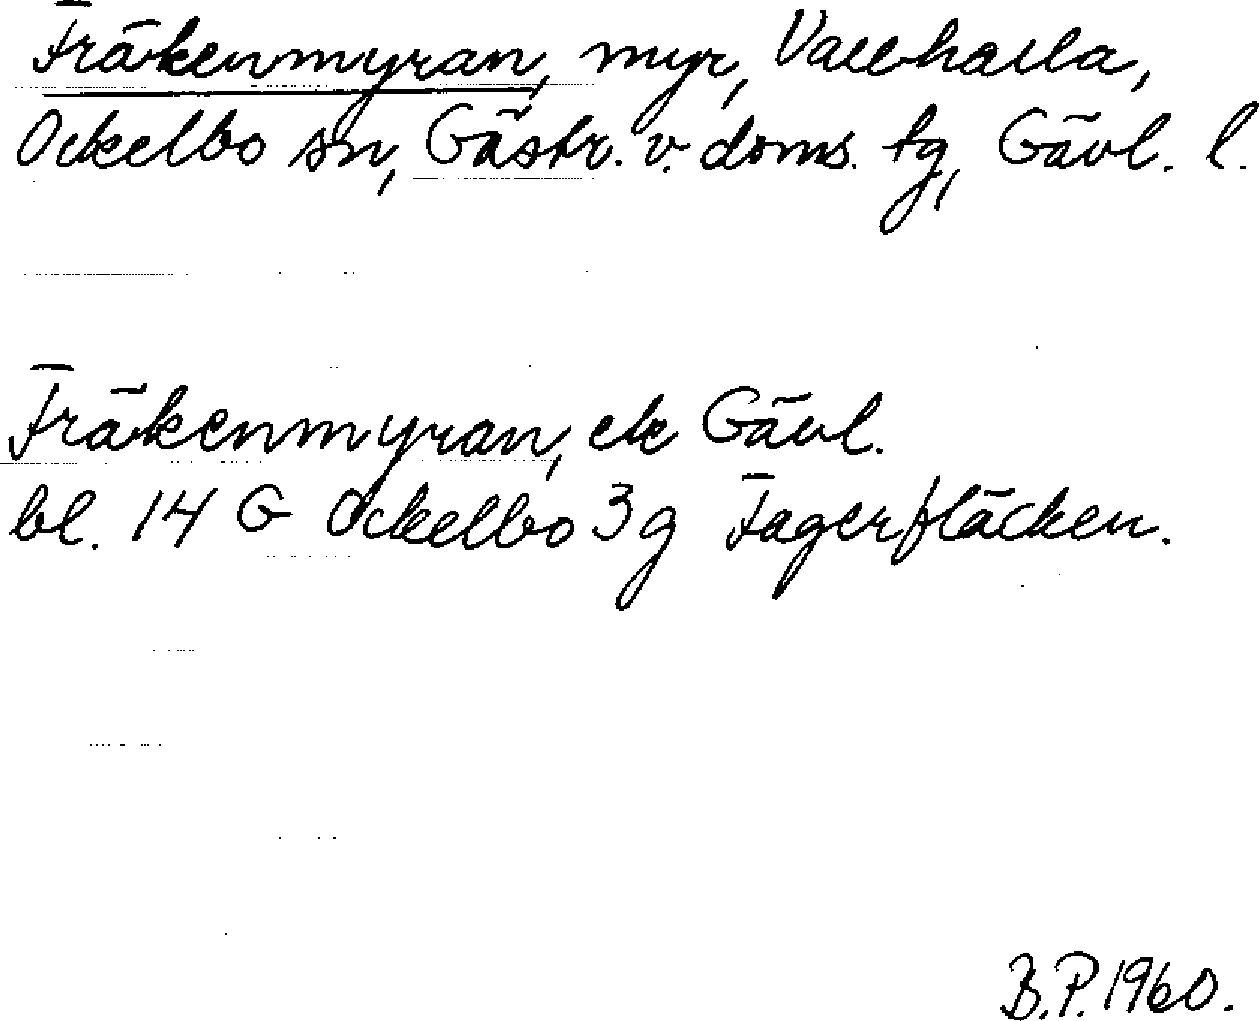 Fräkenmyran, myr, Vallhalla,
Ockelbo sn, Gästr. v. doms. tg, Gävl. l.
Fräkenmyran, ek Gävl.
bl. 14 G Ockelbo 3g Fagerfläcken.
B.P. 1960.